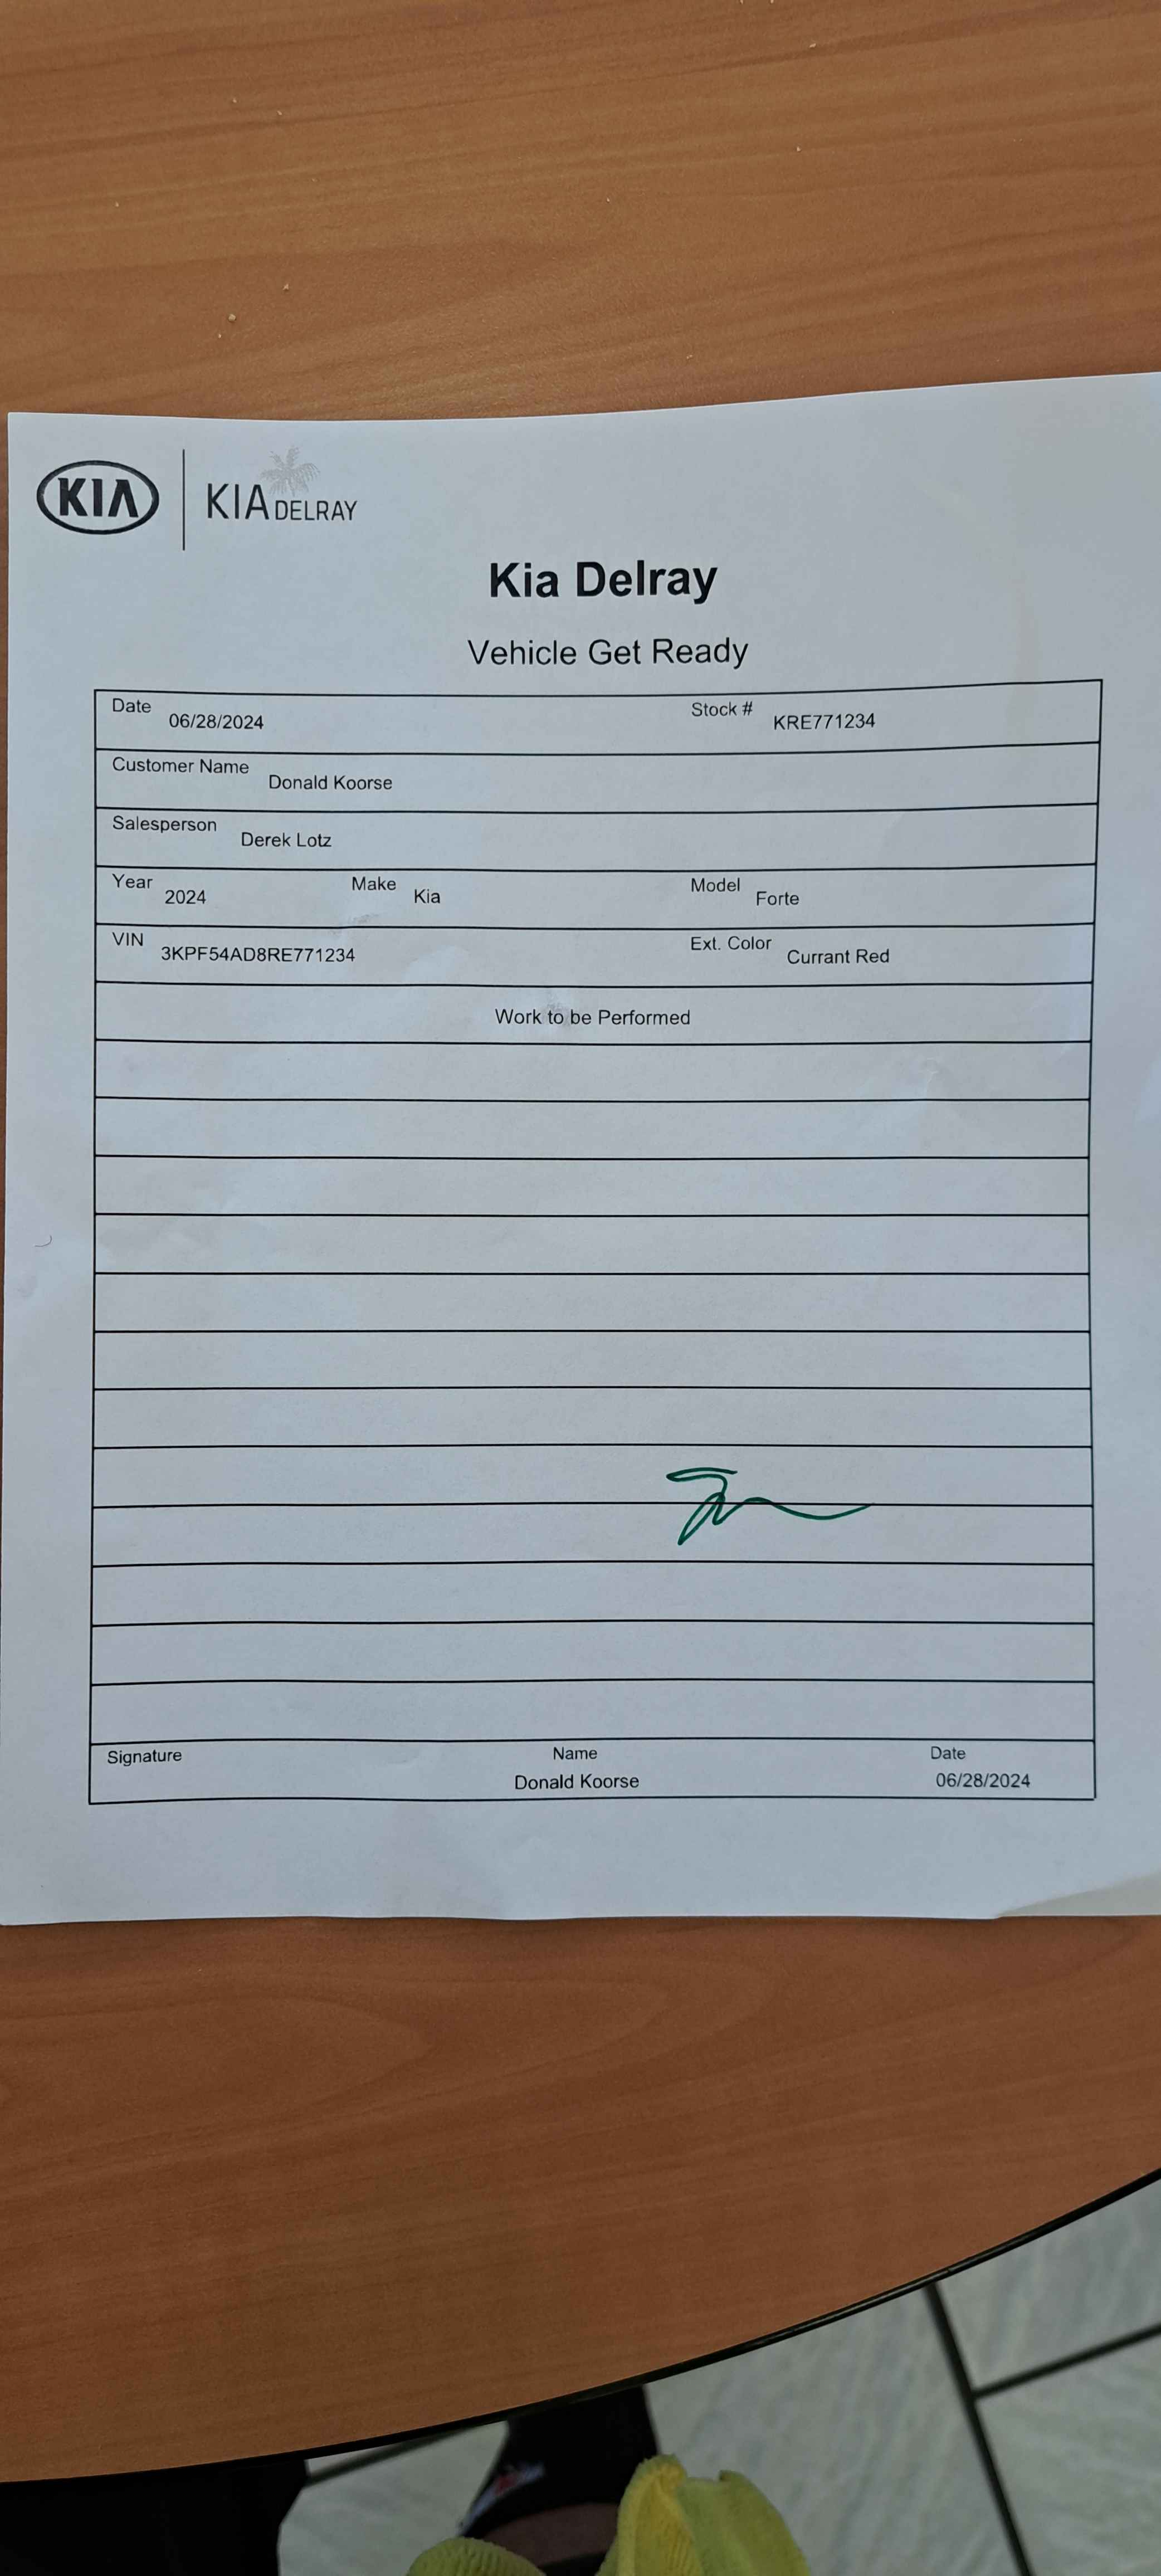 KIA KIA DELRAY
Kia Delray
Vehicle Get Ready
Date 06/28/2024 Stock # KRE771234
Customer Name Donald Koorse
Salesperson Derek Lotz
Year 2024 Make Kia Model Forte
VIN 3KPF54AD8RE771234 Ext. Color Currant Red
Work to be Performed
Signature Name Date
Donald Koorse 06/28/2024